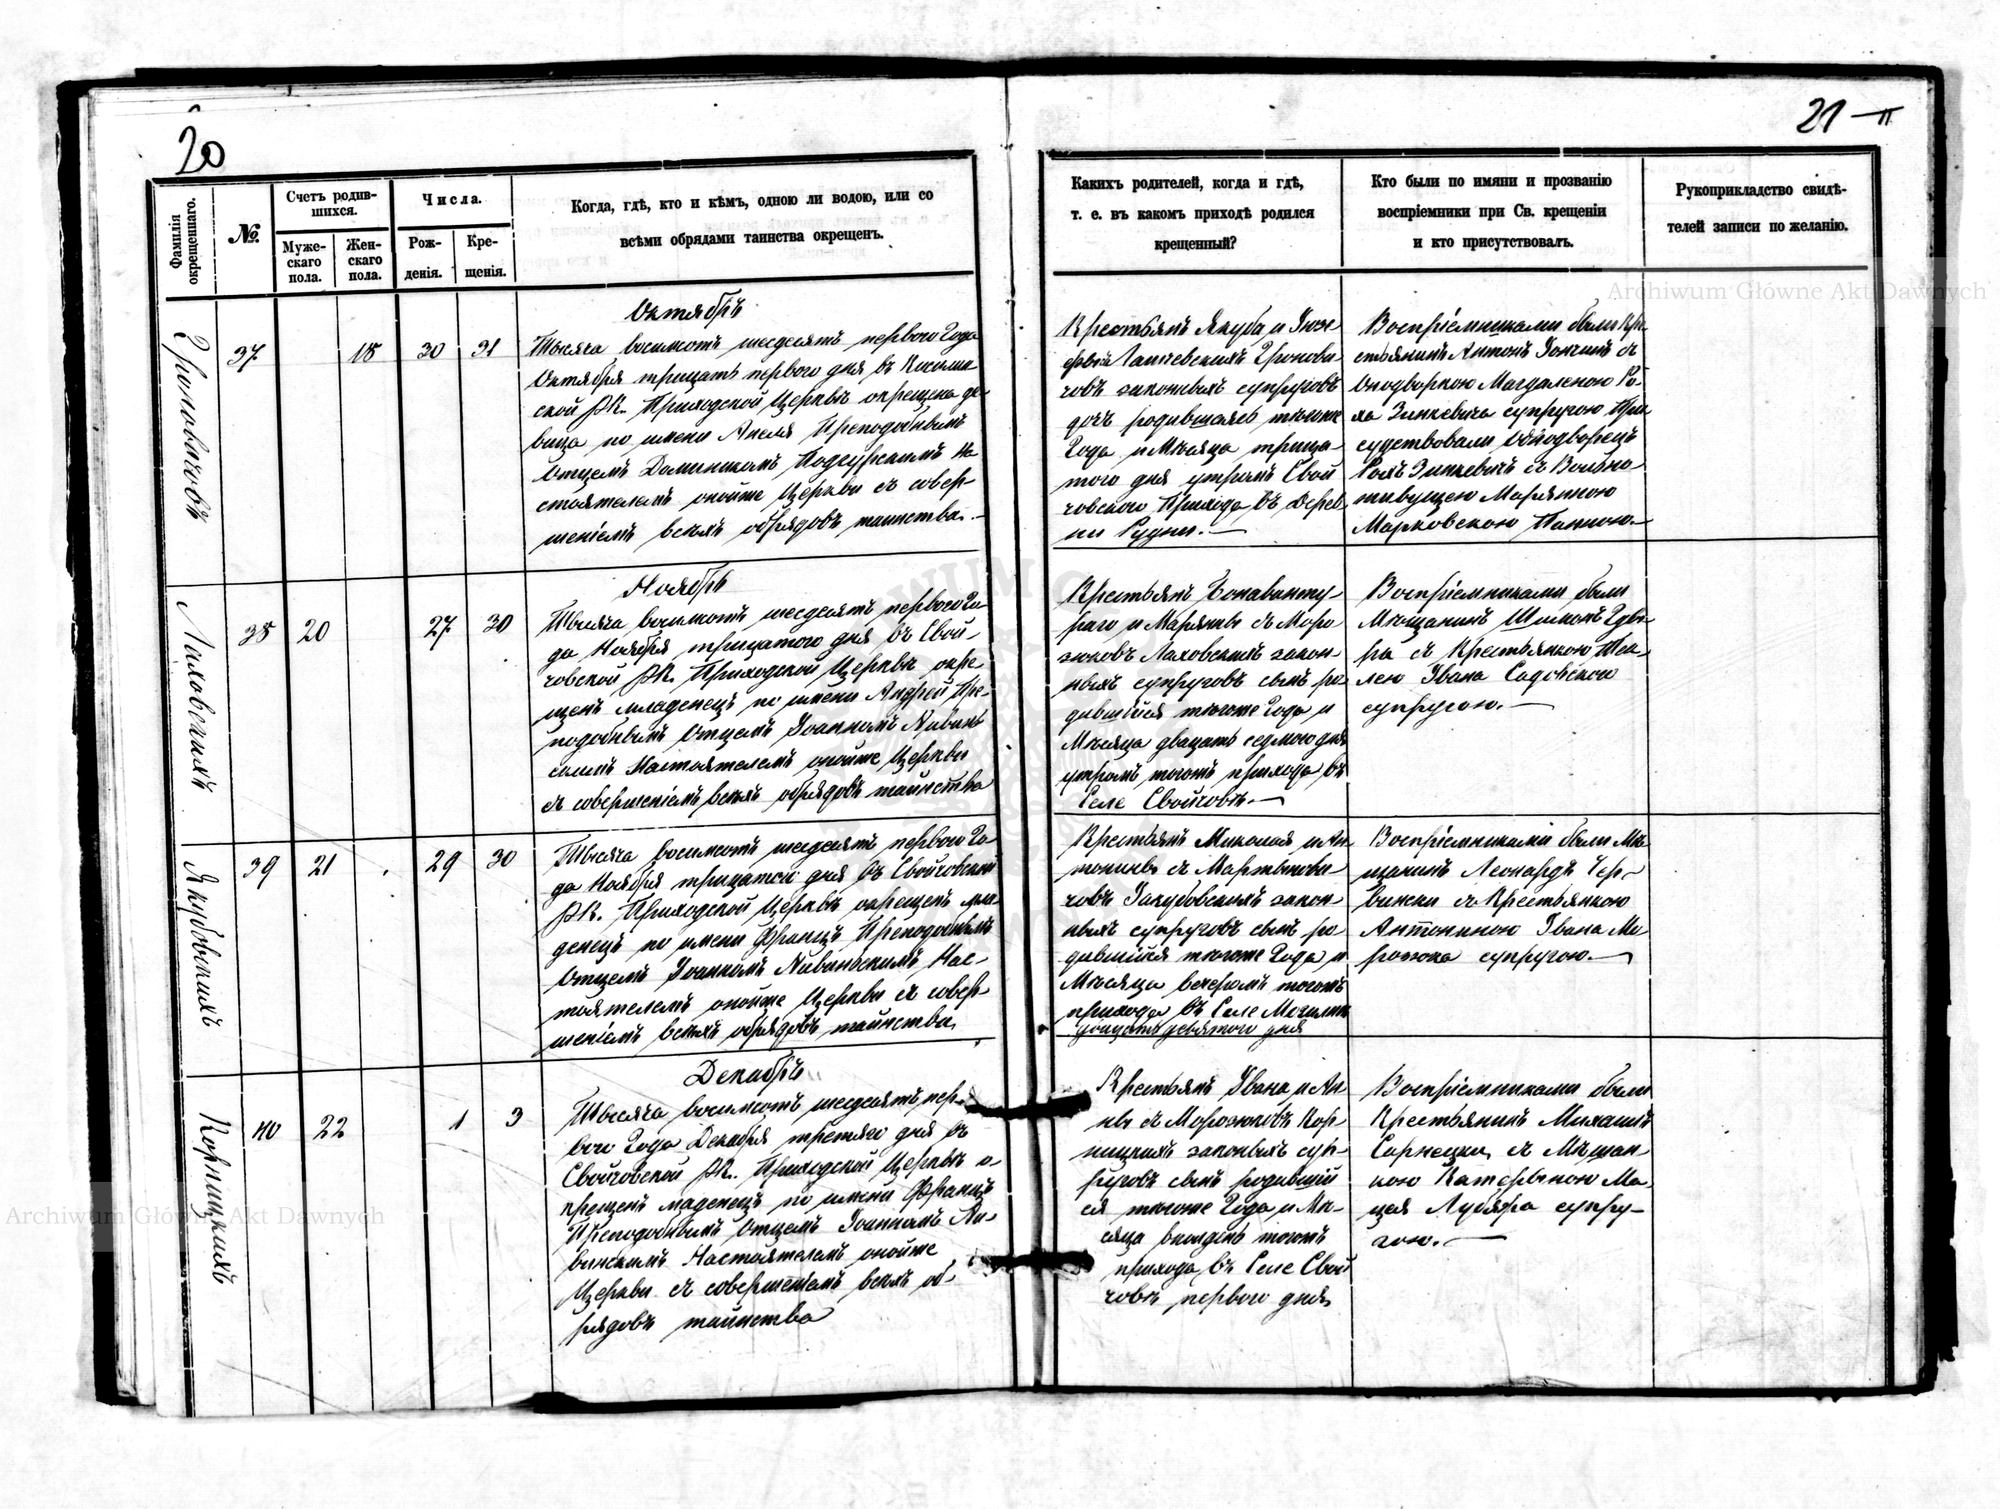 20
21
Фамилія окрещеннаго.
№.
Счетъ родив-
шихся.
Муже-
скаго
пола.
Жен-
скаго
пола.
Числа.
Рож-
денія.
Кре-
щенія.
Когда, гдѣ, кто и кѣмъ, одною ли водою, или со
всѣми обрядами таинства окрещенъ.
Какихъ родителей, когда и гдѣ,
т. е. въ какомъ приходѣ родился
крещенный?
Кто были по имяни и прозванію
воспріемники при Св. крещеніи
и кто присутствовалъ.
Рукоприкладство свидѣ-
телей записи по желанію.
Archiwum Główne Akt Dawnych
Гроповичовъ
37
18
30
31
Октябрь
Тысяча восимсотъ шесдесятъ первого Года
Октября трицать первого дня въ
ской РК. Приходской Церквѣ окрещена дѣ-
вица по имени Анеля Преподобнымъ
Отцемъ Доминикомъ На
стоятелемъ онойже Церкви съ совер-
шеніемъ всехъ обрядовъ таинства.
Крестьянъ Якуба и Юзе
фы Гронови
човъ законныхъ супруговъ
дочь родившаясь тогоже
Года и Мѣсяца трица-
того дня утромъ Свой
човского Прихода въ Дерев
ни Рудни.
Воспріемниками были Кре
стьянинъ Антонъ съ
Оподворкою Магдаленою Ро-
ха Зинкевича супругою При
судствовали Однодворецъ
Рохъ Зинкевичъ съ Вольно-
живущею Маріянною
Марковскою Панною
Лаховскихъ
38
20
27
30
Ноябрь
Тысяча восимсотъ шесдесятъ первого Го-
да Ноября трицатого дня въ Свой-
човской РК. Приходской Церквѣ окре-
щенъ младенецъ по имени Андрей Пре-
подобнымъ Отцемъ Іоанномъ
Настоятелемъ онойже Церкви
съ совершеніемъ всехъ обрядовъ таинства
Крестьянъ Бонавенту-
раго и Маріянны съ Моро
зюковъ Лаховскихъ закон-
ныхъ супруговъ сынъ ро-
дившійся тогоже Года и
Мѣсяца двацать седмого дня
утромъ тогожъ прихода въ
Селе Свойчовѣ.
Воспріемниками были
Мѣщанинъ Шимонъ
съ Крестьянкою Тек-
лею Ивана Садовского
супругою.
Якубовскихъ
39
21
29
30
Тысяча восимсотъ шесдесятъ первого Го-
да Ноября трицатого дня въ Свойчовской
РК. Приходской Церквѣ окрещенъ мла
денецъ по имени Францъ Преподобнымъ
Отцемъ Іоанномъ Нас-
тоятелемъ онойже Церкви съ совер-
шеніемъ всехъ обрядовъ таинства
Крестьянъ Миколая и Ан
тонины съ Мартынови
човъ Якубовскихъ закон-
ныхъ супруговъ сынъ ро
дившійся тогоже Года и
Мѣсяца вечеромъ тогожъ
прихода въ Селе
двацать девятого дня
Воспріемниками были Мѣ
щанинъ Леонардъ Чер-
вински съ Крестьянкою
Антониною Ивана Мо
розюка супругою.
Корпицкихъ
40
22
1
3
Декабрь
Тысяча восимсотъ шесдесятъ пер-
вого Года Декабря третяго дня въ
Свойчовской РК. Приходской Церквѣ о-
крещенъ младенецъ по имени Францъ
Преподобнымъ Отцемъ Іоанномъ
Настоятелемъ онойже
Церкви съ совершеніемъ всехъ об-
рядовъ таинства
Крестьянъ Ивана и Ан
ны съ Морозюковъ Кор
пицкихъ законныхъ суп-
руговъ сынъ родившій
ся тогоже Года и Мѣ-
сяца тогожъ
прихода въ Селе Свой
човѣ первого дня
Воспріемниками были
Крестьянинъ Михаилъ
Сарнецки съ Мѣщан-
кою Катерыною
супру-
гою.
Archiwum Główne Akt Dawnych